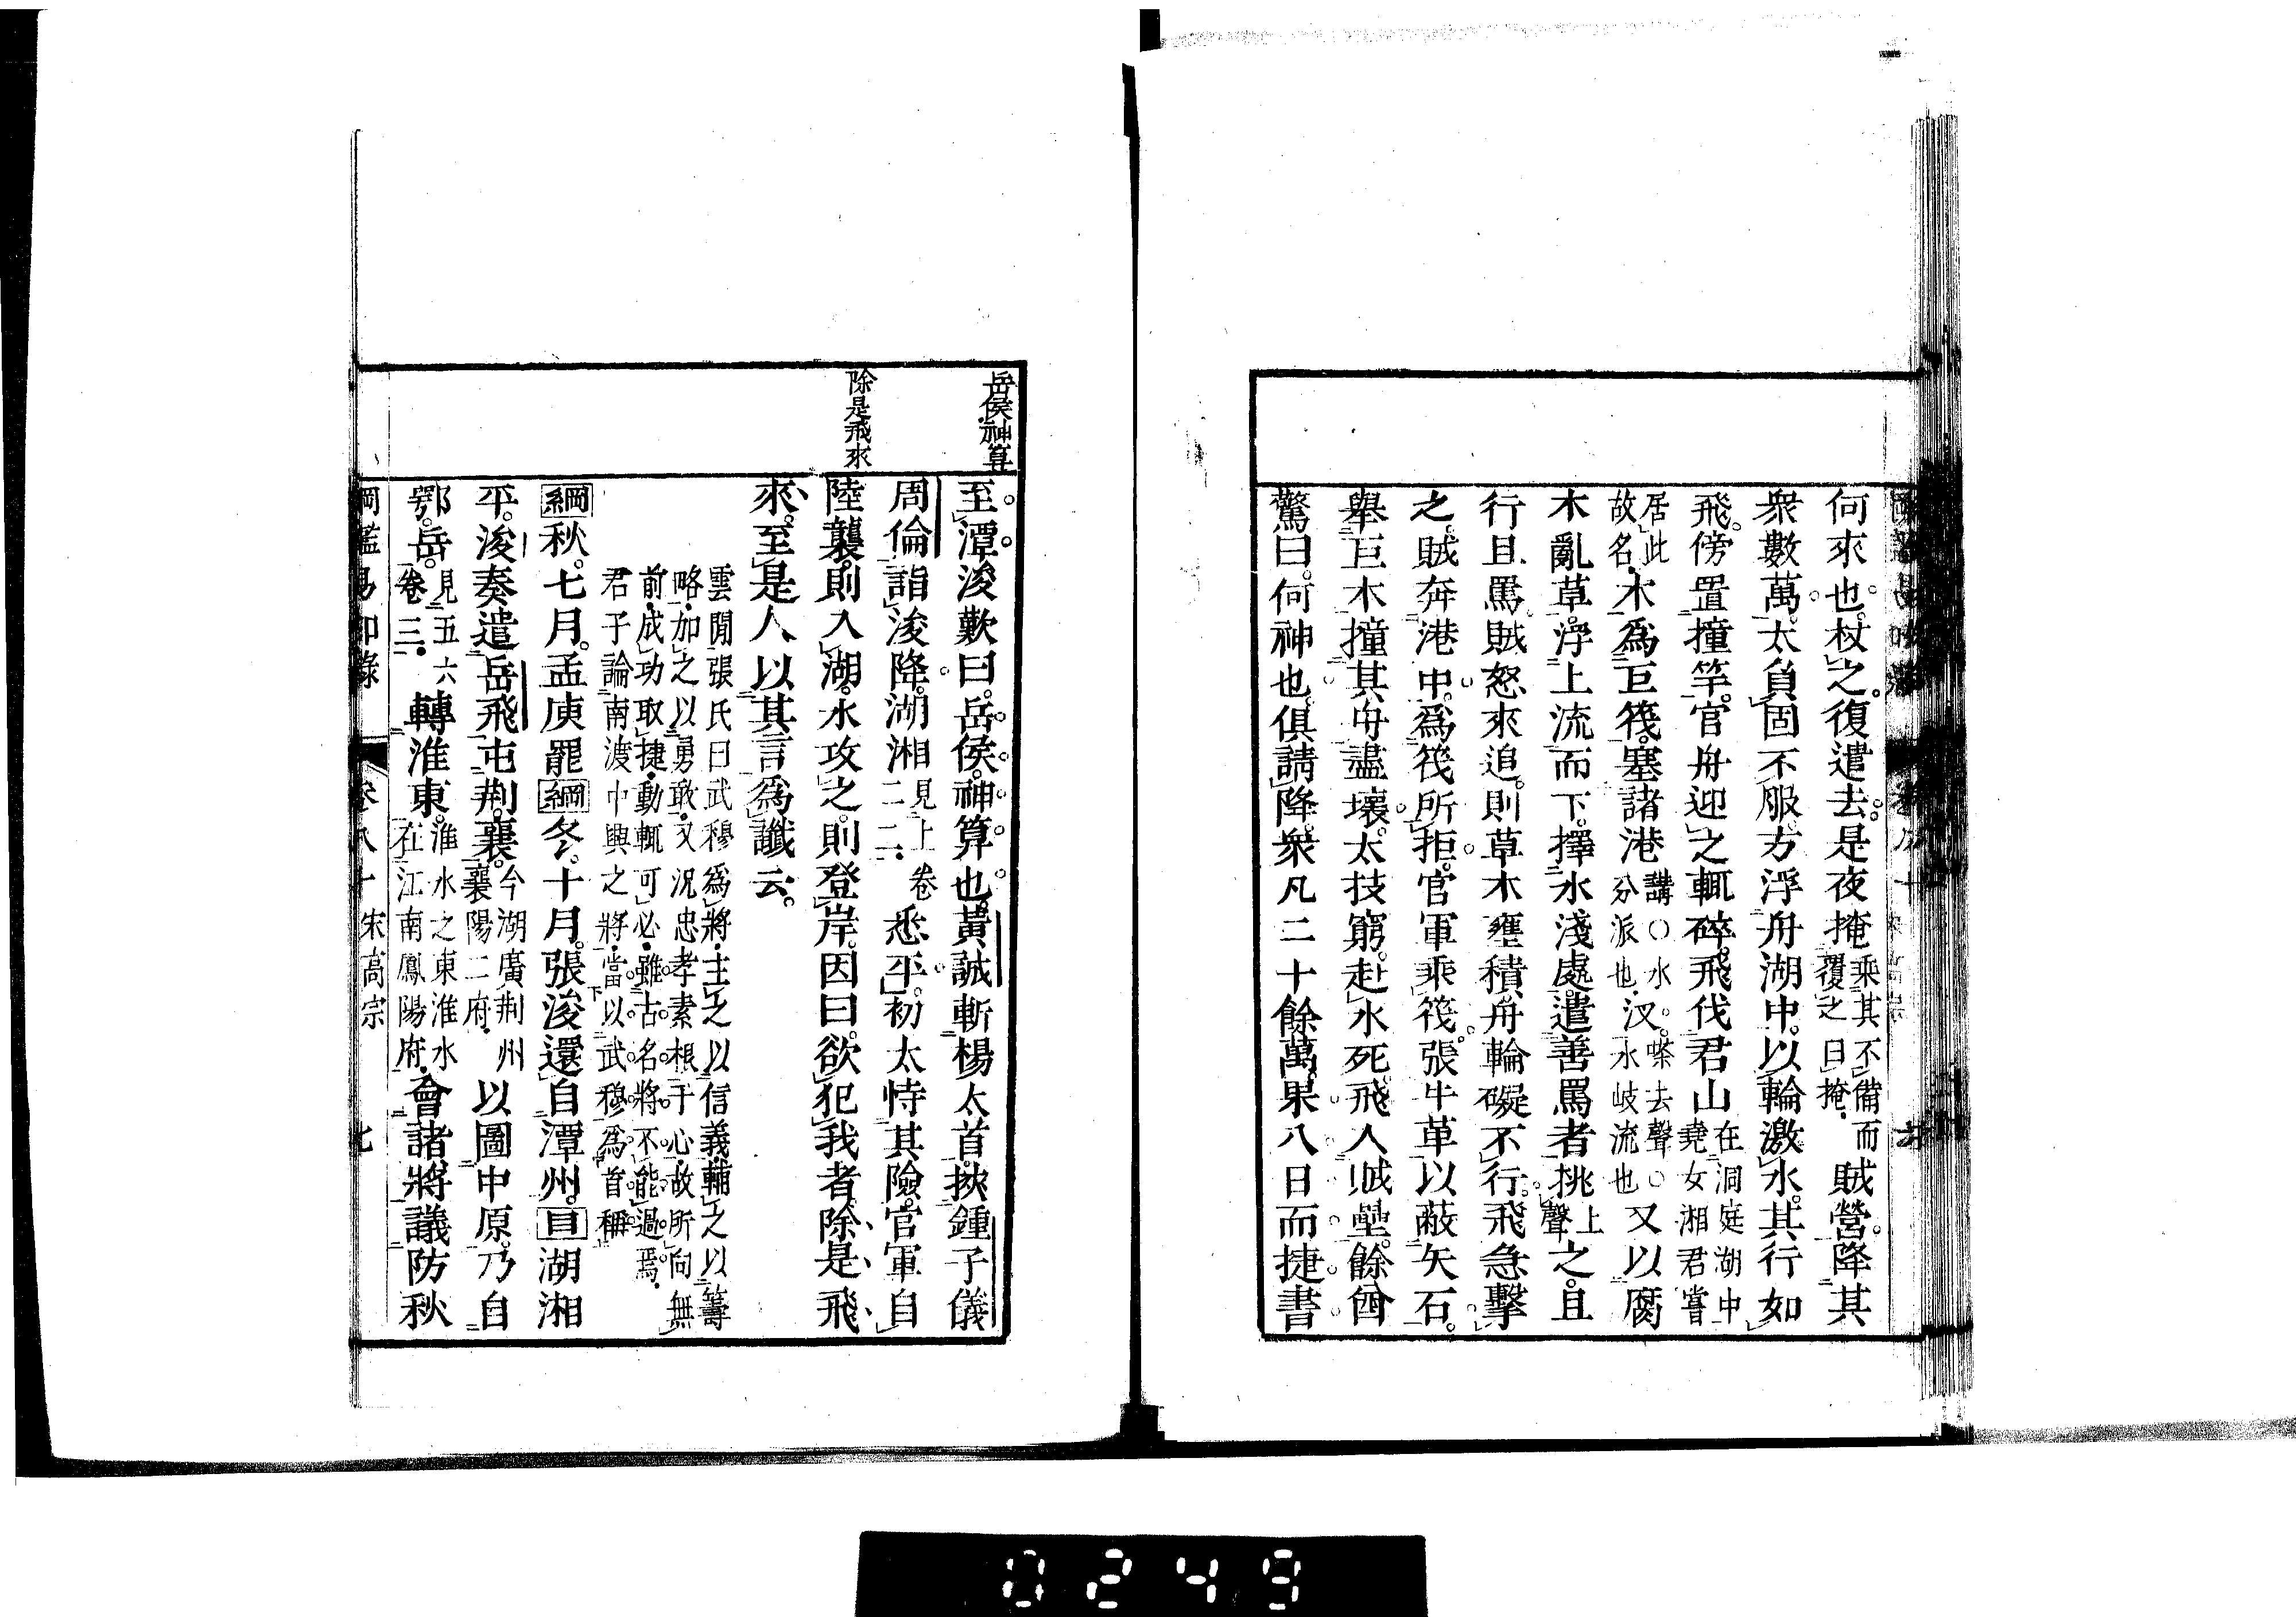 何來也。杖之。復遣去。是夜掩乘其不備而覆之曰掩。賊營。降其
衆數萬。太負固不服。方浮舟湖中。以輪激水。其行如
飛。傍置撞竿。官舟迎之輒碎。飛伐君山在洞庭湖中堯女湘君嘗
居此故名。木爲巨筏。塞諸港講〇水分派也。汊。嗏去聲〇水岐流也又以腐
木亂草。浮上流而下。擇水淺處。遣善罵者挑上聲之。且
行且罵。賊怒來追。則草木壅積。舟輪礙不行。飛急擊
之。賊奔港中。爲筏所拒。官軍乘筏。張牛革以蔽矢石。
舉巨木撞其舟盡壞。太技窮。赴水死。飛入賊壘。餘酋
驚曰。何神也。俱請降。衆凡二十餘萬。果八日而捷書
岳侯神算
至潭。浚歎曰。岳侯。神算也。黃誠斬楊太首。挾鍾子儀
周倫詣浚降。湖湘見上卷二二。悉平。初太恃其險。官軍自
除是飛來
陸襲。則入湖。水攻之。則登岸。因曰。欲犯我者。除是飛
來。至是人以其言爲讖云。
雲間張氏曰武穆爲將。主之以信義。輔之以籌
略。加之以勇敢。又況忠孝素根于心。故所向無
前。成功取捷。動輒可必。雖古名將不能過焉。
君子論南渡中興之將。當以武穆爲首稱
綱秋。七月。孟庾罷綱冬。十月。張浚還自潭州。目湖湘
平。浚奏遣岳飛屯荆。襄。今湖廣荆州襄陽二府。以圖中原。乃自
鄂。岳。見五六卷三。轉淮東。淮水之東淮水在江南鳳陽府。會諸將議防秋
綱鑑易知錄 卷八十 宋高宗 七
0249